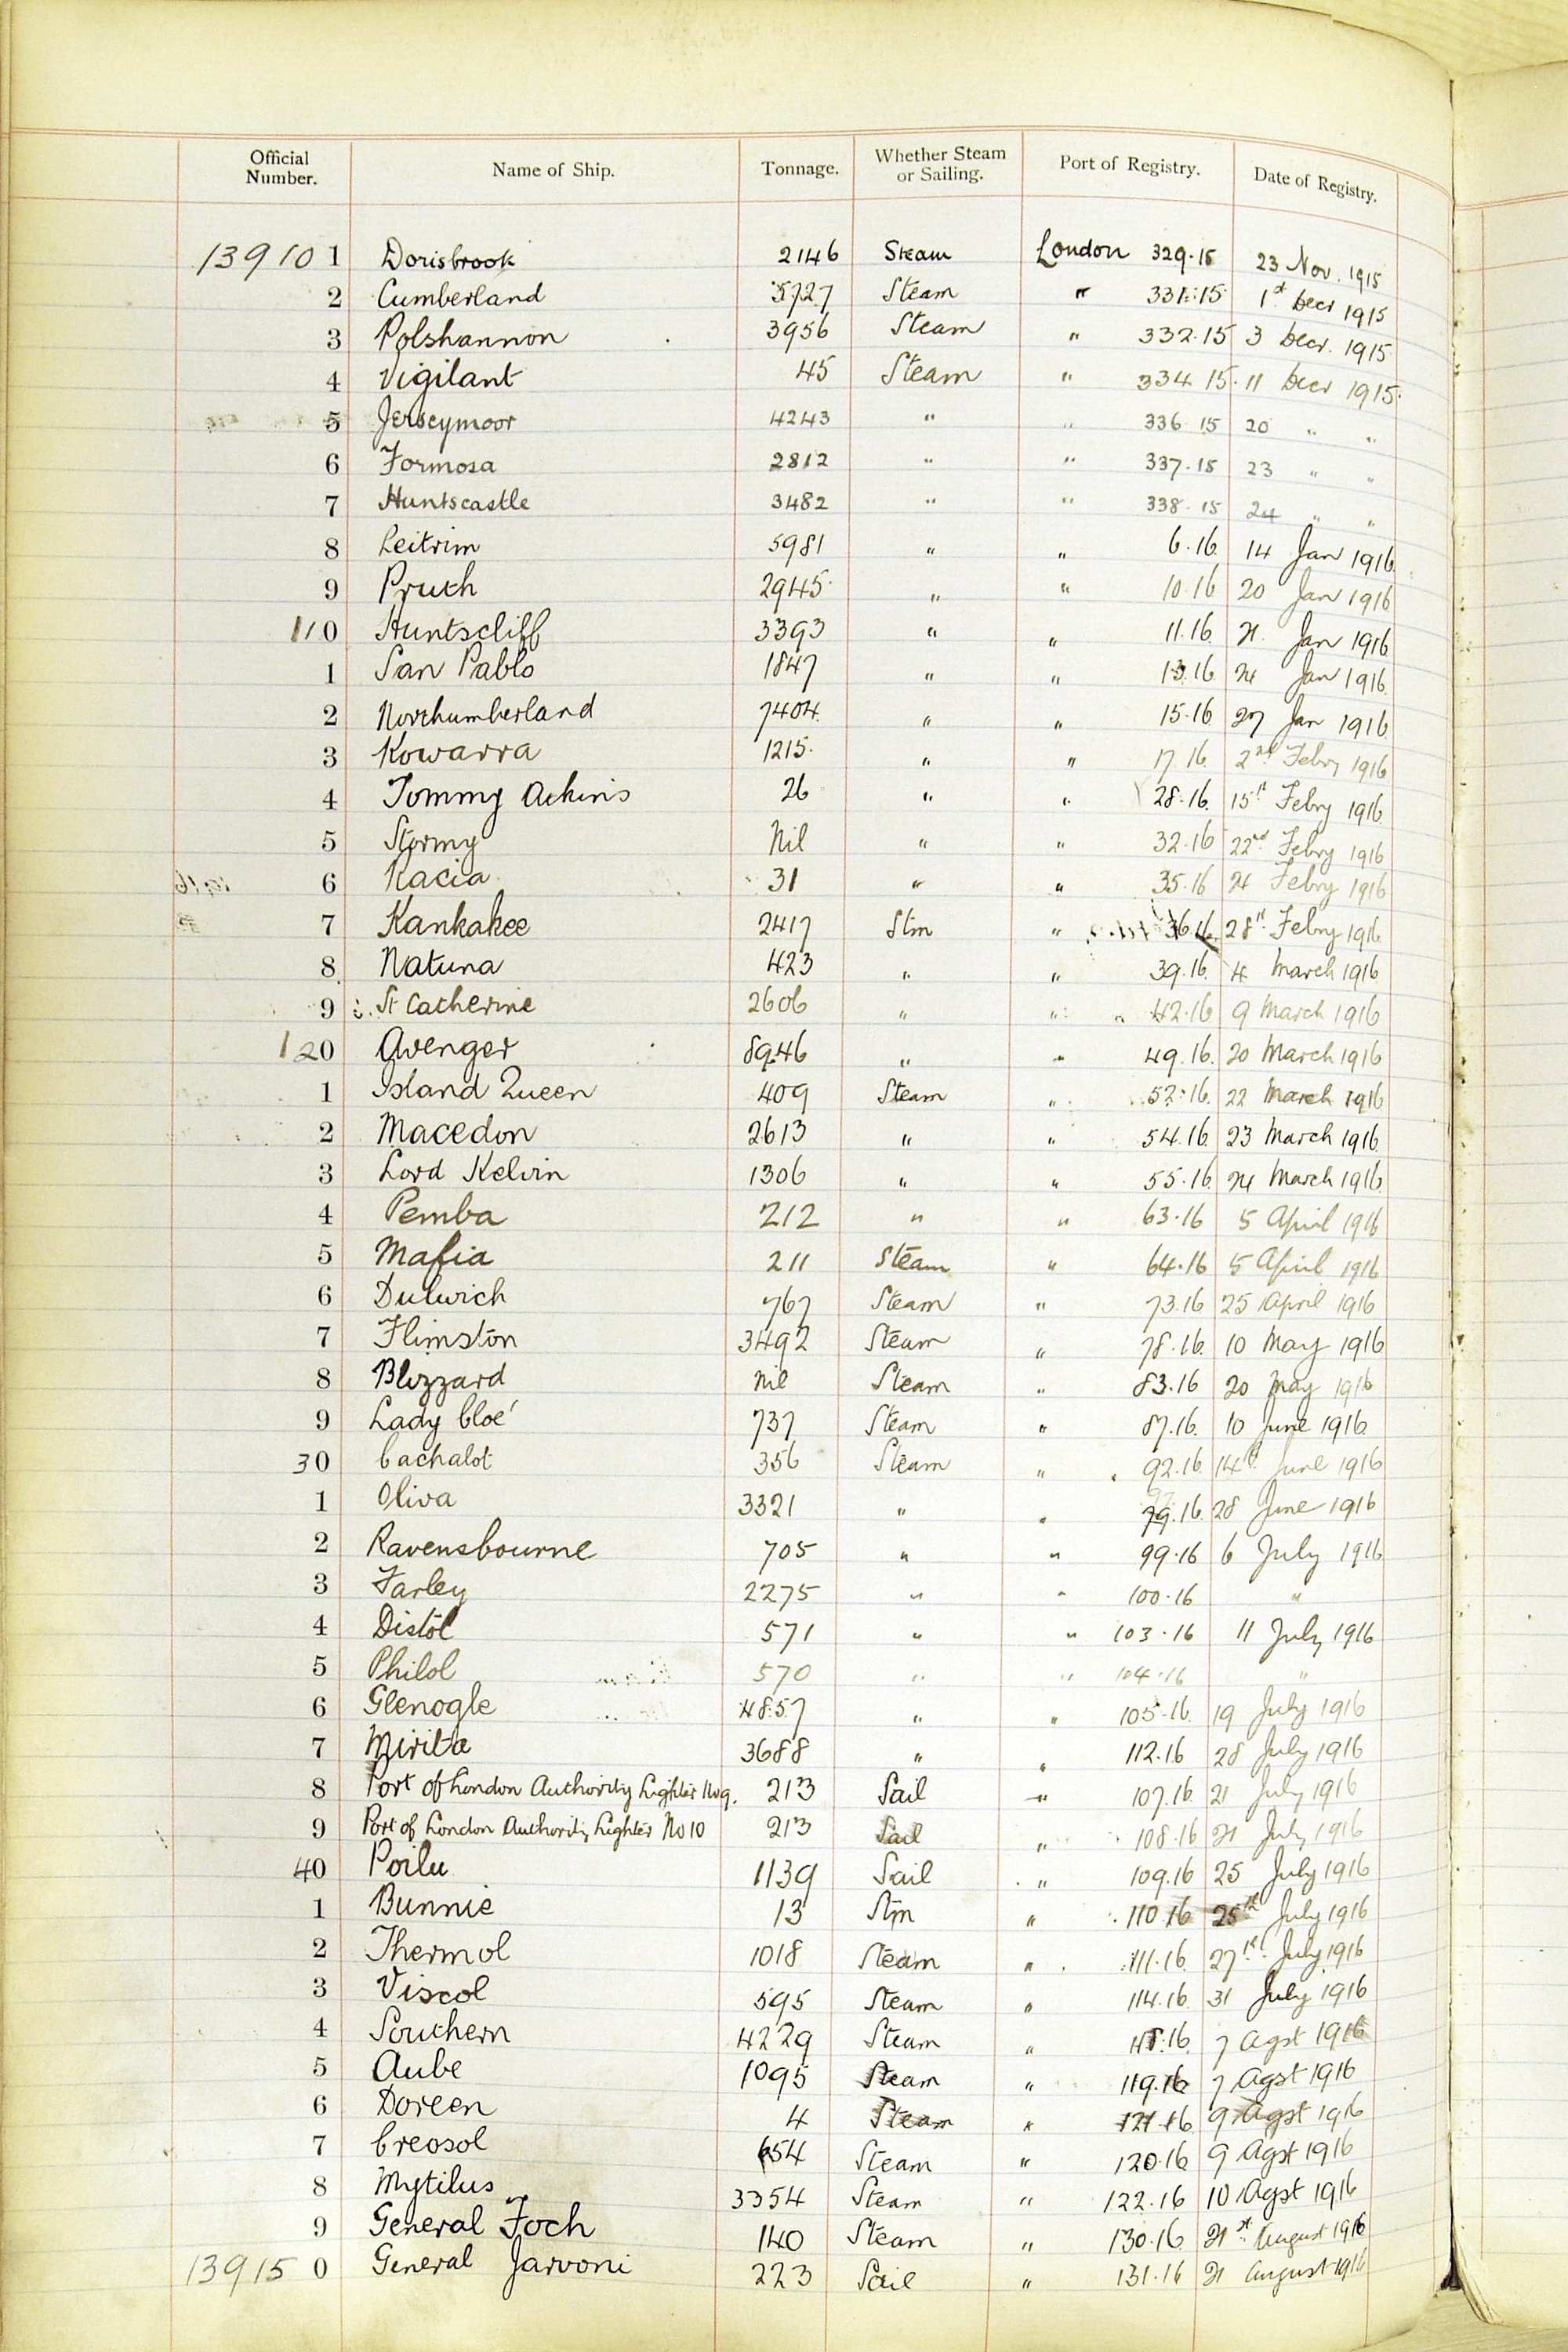 Official Number. Name of Ship. Tonnage. Whether Steam or Sailing. Port of Registry. Date of Registry.
139101 Dorisbrook 2146 Steam London 329.15 23 Nov. 1915
2 Cumberland 5727 Steam " 331.15 1st Decr 1915
3 Polshannon 3956 Steam " 332.15 3 Decr. 1915
4 Vigilant 45 Steam " 334 15. 11 Decr 1915.
5 Jerseymoor 4243 " " 336 15 20 " "
6 Formosa 2812 " " 337.15 23 " "
7 Huntscastle 3482 " " 338.15 24 " "
8 Leitrim 5981 " " 6.16. 14 Jan 1916.
9 Pruth 2945 " " 10.16 20 Jan 1916
110 Huntscliff 3393 " " 11.16 21. Jan 1916
1 San Pablo 1847 " " 13.16 24 Jan 1916.
2 Northumberland 7404. " " 15.16 27 Jan 1916
3 Kowarra 1215. " " 17.16. 2nd Febry 1916
4 Tommy Atkins 26 " " 28.16. 15th Febry 1916.
5 Stormy Nil " " 32.16 22nd Febry 1916
6 Kacia 31 " " 35.16 24 Febry 1916
7 Kankakee 2417 Stm " 36.16 28th Febry 1916
8 Natuna 423 " " 39.16. 4 March 1916
9 St Catherine 2606 " " 42.16 9 March 1916
120 Avenger 8946 " " 49.16. 20 March 1916
1 Island Queen 409 Steam " 52.16. 22 March 1916
2 Macedon 2613 " " 54.16. 23 March 1916
3 Lord Kelvin 1306 " " 55.16. 24 March 1916.
4 Pemba 212 " " 63.16 5 April 1916
5 Mafia 211 Steam " 64.16 5 April 1916
6 Dulwich 767 Steam " 73.16 25 April 1916
7 Flimston 3492 Steam " 78.16. 10 May 1916
8 Blizzard Nil Steam " 83.16 20 May 1916
9 Lady Cloé 737 Steam " 87.16. 10 June 1916
30 Cachalot 356 Steam " 92.16 14th June 1916
1 Oliva 3321 " " .16. 28 June 1916
2 Ravensbourne 705 " " 99.16 6 July 1916
3 Farley 2275 " " 100.16 "
4 Distol 571 " " 103.16 11 July 1916
5 Philol 570 " " 104.16 "
6 Glenogle 4857 " " 105.16. 19 July 1916
7 Mirita 3688 " " 112.16 28 July 1916
8 Port of London Authority Lighter No 9. 213 Sail " 107.16. 21 July 1916
9 Port of London Authority Lighter No 10 213 Sail " 108.16 21 July 1916
40 Poilu 1139 Sail " 109.16 25 July 1916
1 Bunnie 13 Stm " 110.16 25th July 1916
2 Thermol 1018 Steam " 111.16. 27th July 1916
3 Viscol 595 Steam " 114.16. 31 July 1916
4 Southern 4229 Steam " 118.16. 7 Agst 1916
5 Aube 1095 Steam " 119.16 7 Agst 1916
6 Doreen 4 Steam " 121.16 9 Agst 1916
7 Creosol 654 Steam " 120.16 9 Agst 1916
8 Mytilus 3354 Steam " 122.16 10 Agst 1916
9 General Foch 140 Steam " 130.16. 21st August 1916
139150 General Jarvoni 223 Sail " 131.16 21 August 1916